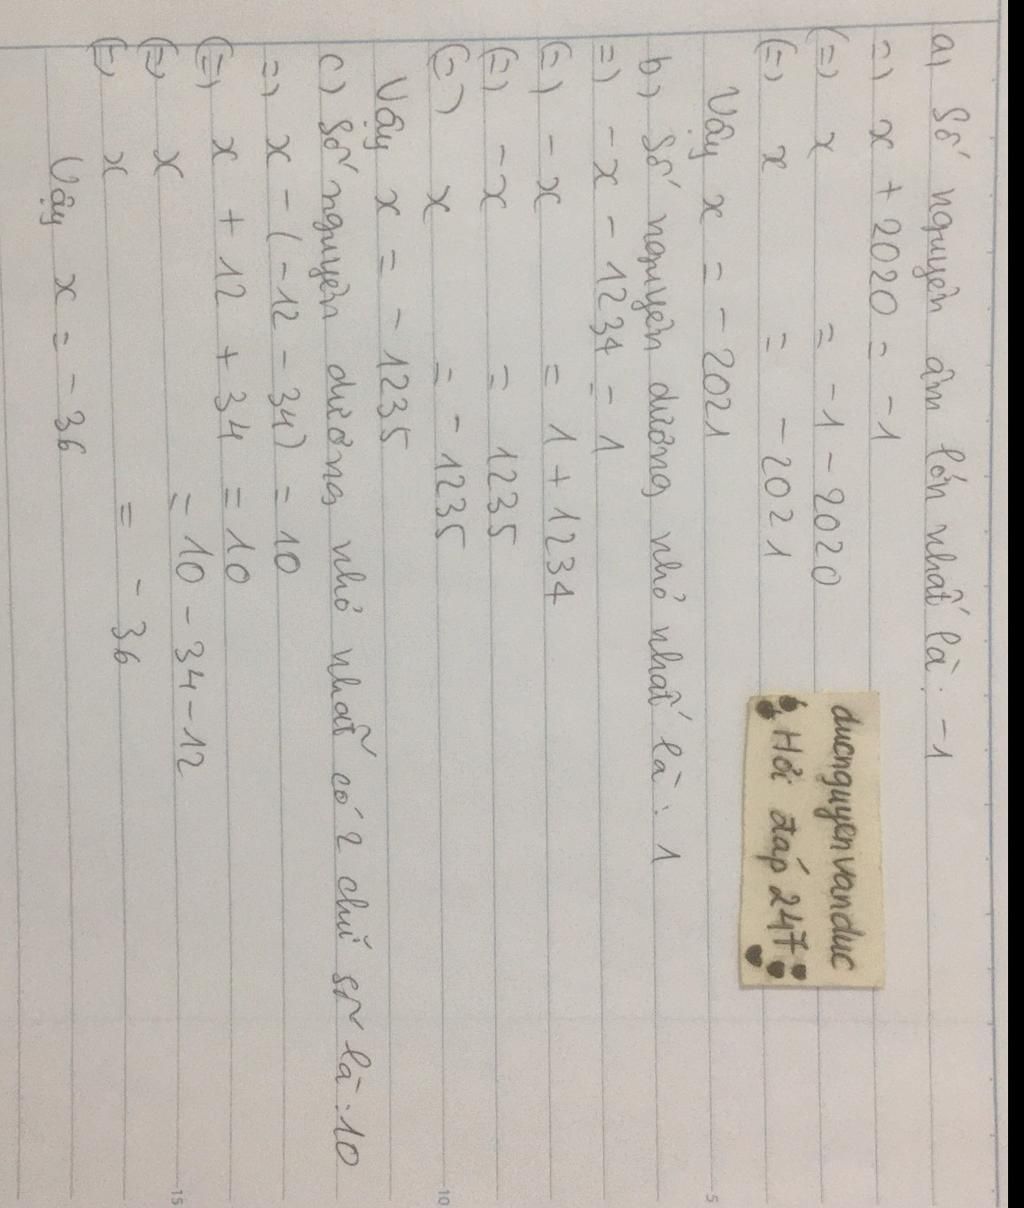 a) Số nguyên âm lớn nhất là: -1
=) x + 2020 = -1
(=) x = -1 - 2020
(=) x = -2021
Vậy x = -2021
ducnguyenvanduc
Hỏi đáp 247
b) Số nguyên dương nhỏ nhất là: 1
=) -x - 1234 = 1
(=) -x = 1 + 1234
(=) -x = 1235
(=) x = -1235
Vậy x = -1235
c) Số nguyên dương nhỏ nhất có 2 chữ số là: 10
=) x - (-12 - 34) = 10
(=) x + 12 + 34 = 10
(=) x = 10 - 34 - 12
(=) x = -36
Vậy x = -36
5
10
15